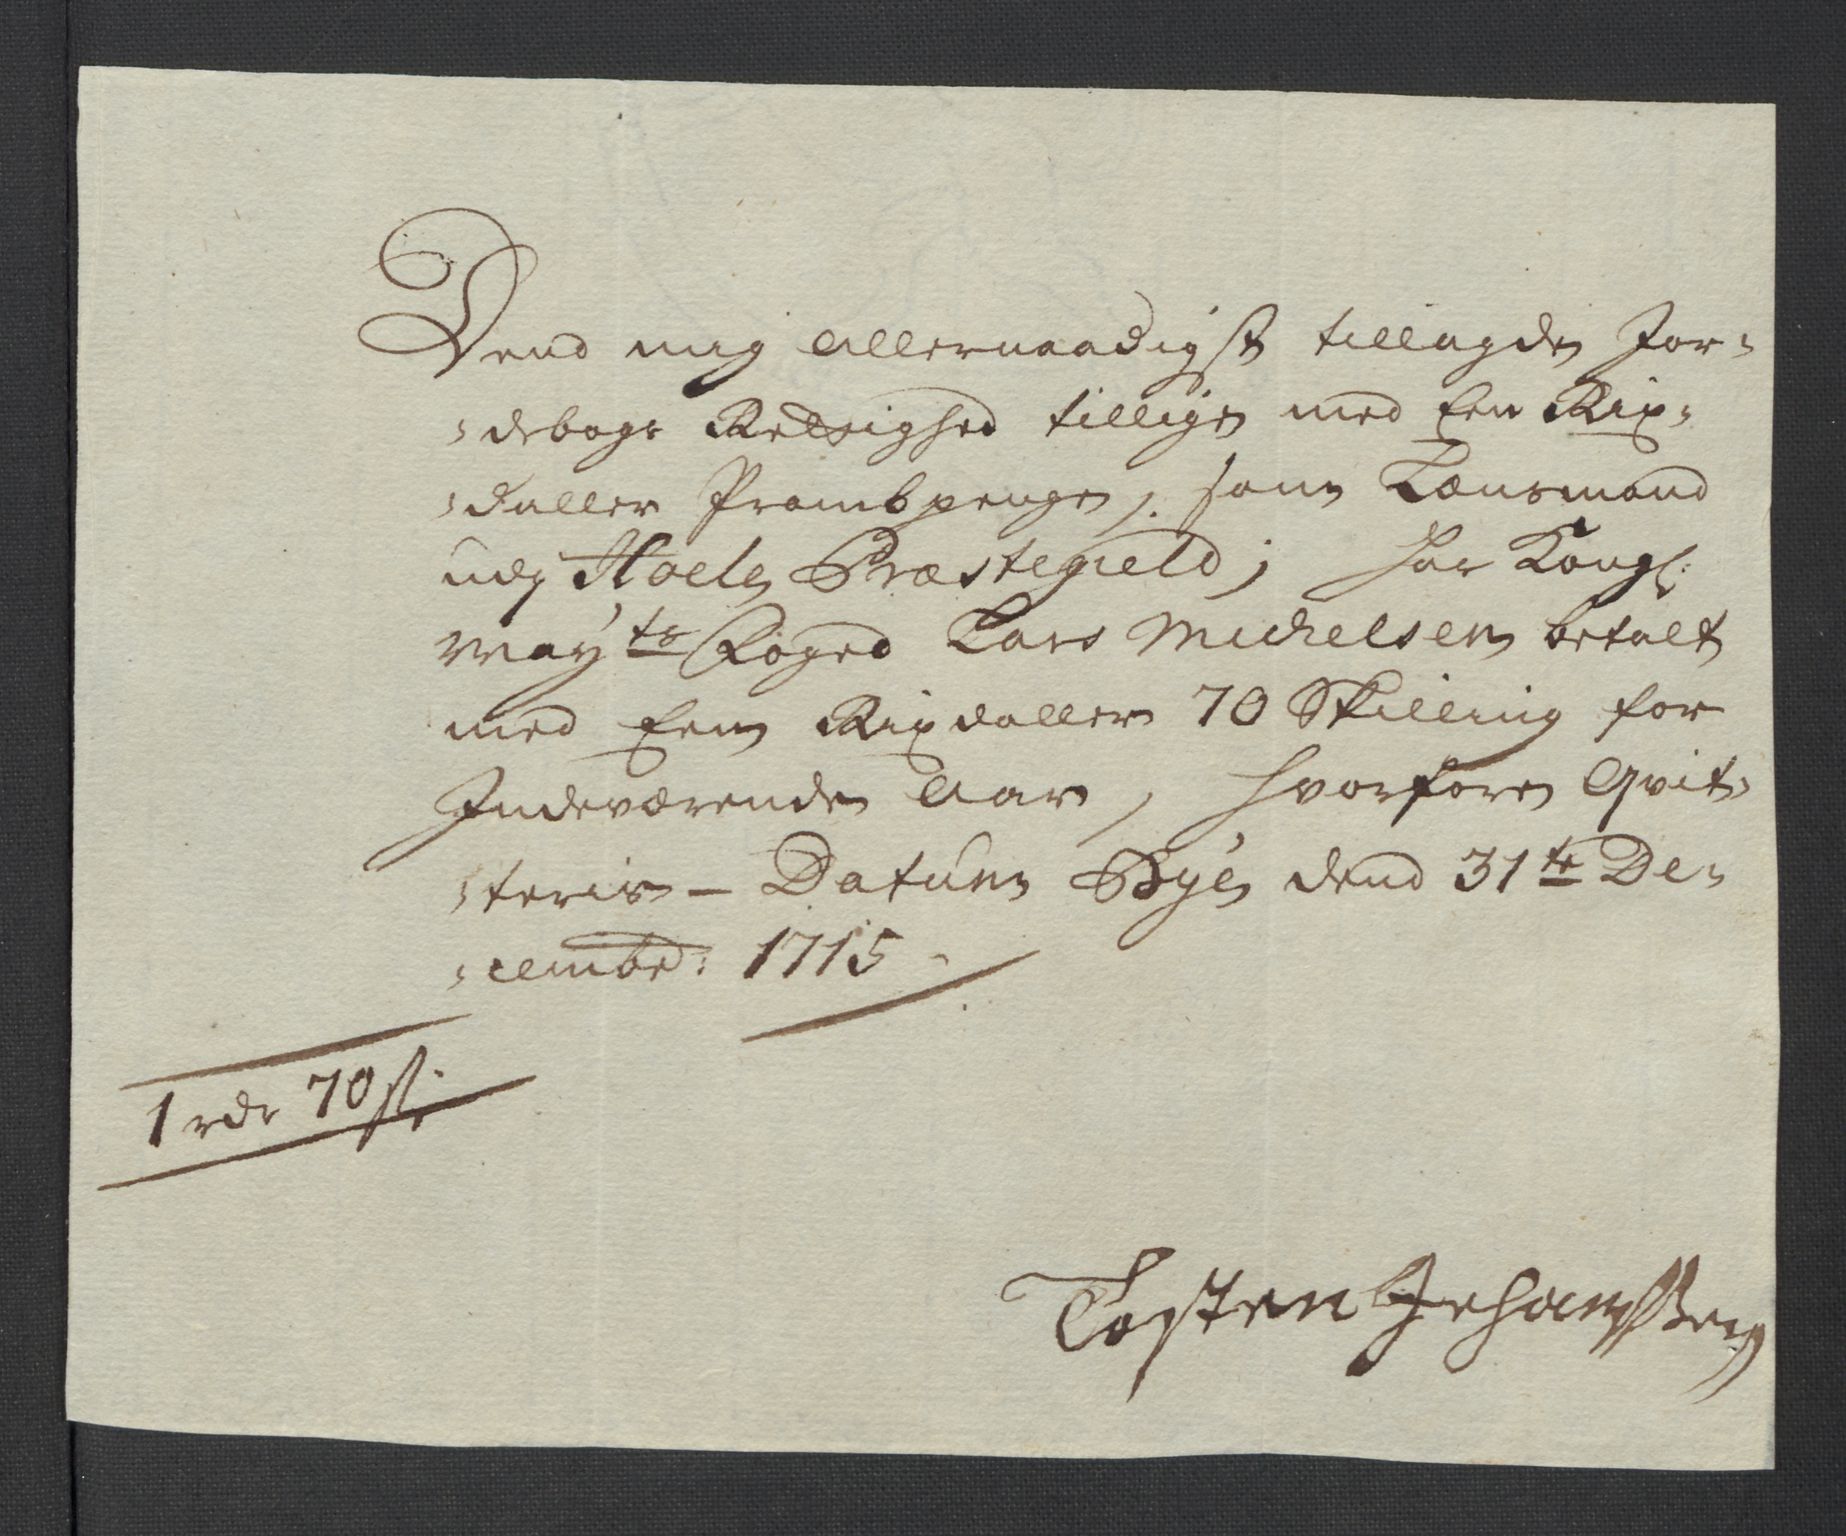 Dend mig allernaadigst tillagde Jor-
-debogs Retsighed tillige med Een Rix-
-daller Prambpenge, som Lænsmand
udj Hoele Præstegield; har Kongl:
May.ts Foged Lars Michelsen betalt
med Een Rixdaller 70 Skilling for
Indeværende Aar, hvorfore Qvit-
-teris - Datum Bye dend 31te De-
-cembr: 1715.
1 rdr 70 s.
Tosten Jehanssen